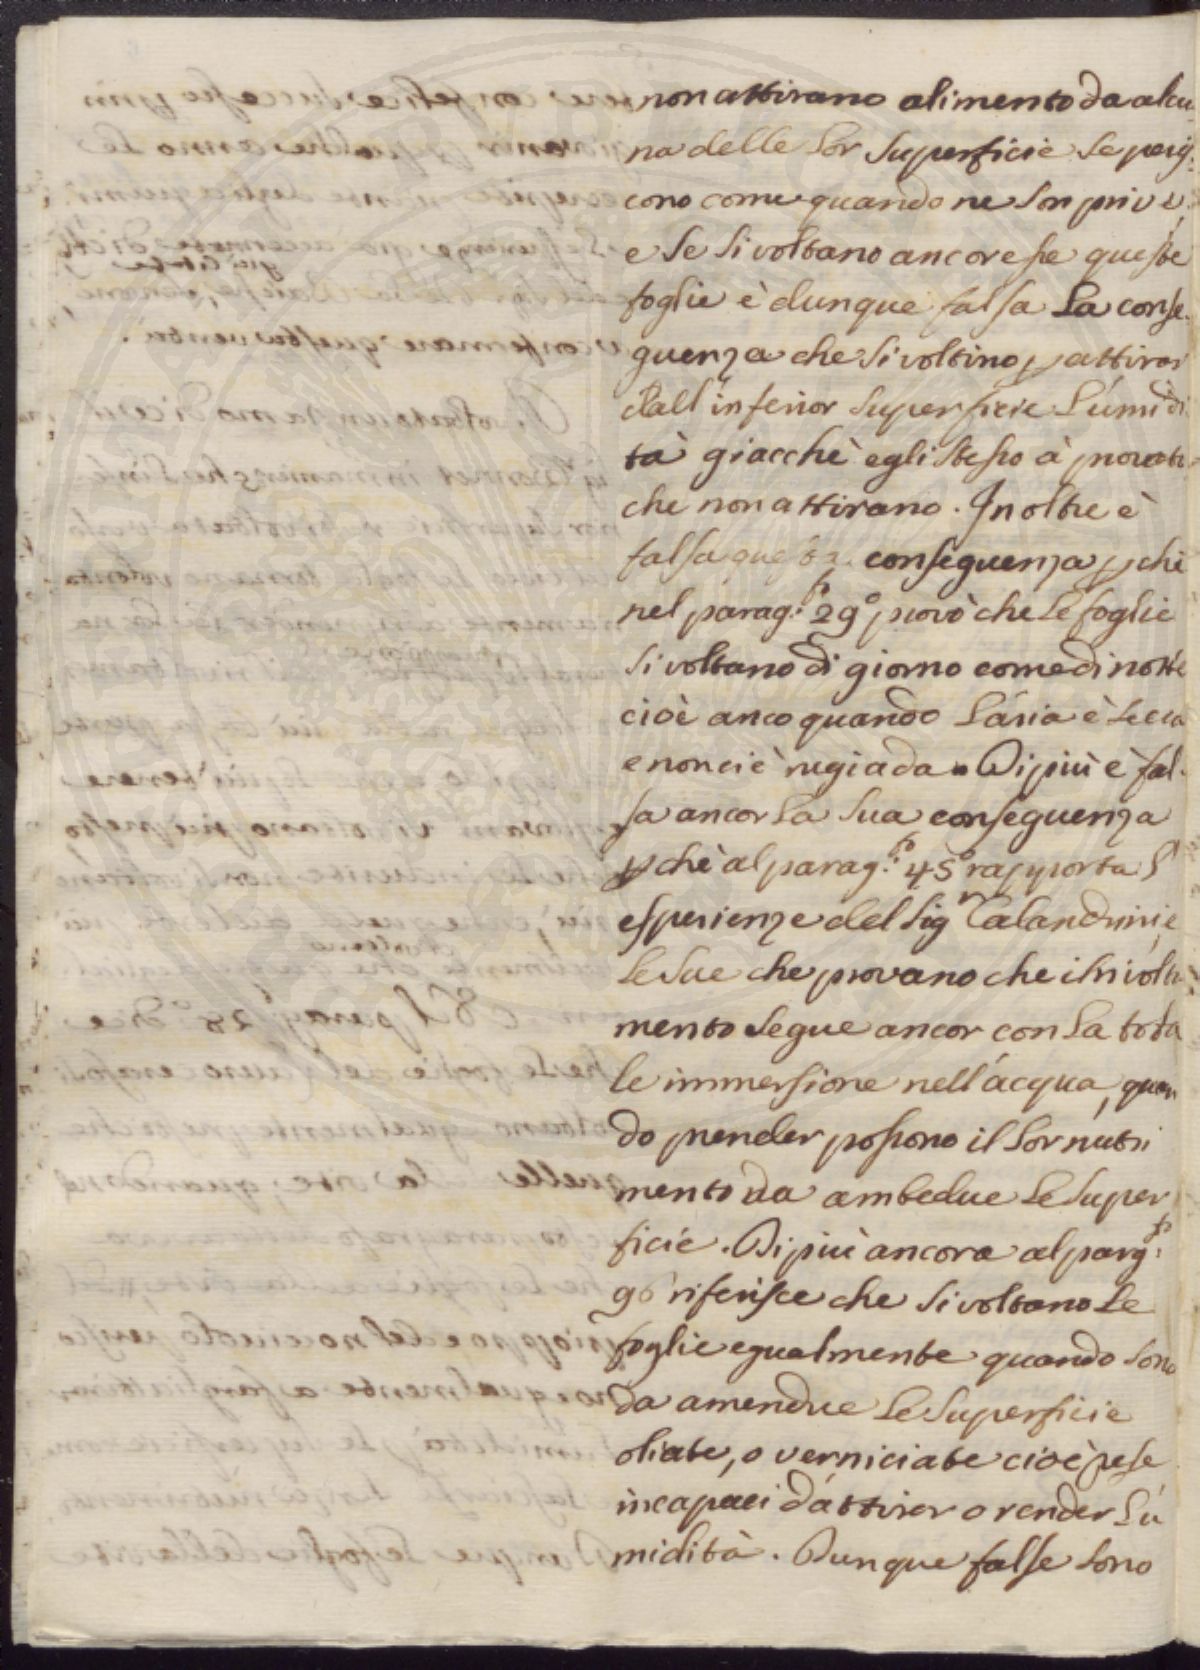 non attirano alimento da alcu-
na delle lor superficie se peris-
cono come quando ne son prive,
e se si voltano ancor esse queste
foglie è dunque falsa la conse-
guenza che si voltino p attirar
dall'inferior superficie l'umidi
tà giacchè egli stesso à provato
che non attirano. Inoltre è
falsa questa conseguenza pchè
nel parag:fo 29° provò che le foglie
si voltano di giorno come di notte
cioè anco quando l'aria è secca
e non ci è rugiada. Di più è fal-
sa ancor la sua conseguenza
pchè al parag:fo 45° rapporta l'
esperienze del Sigr Calandrini, e
le sue che provano che il rivolta
mento segue ancor con la tota
le immersione nell'acqua, quan
do prender possono il lor nutri
mento da ambedue le super
ficie. Di più ancora al parg:fo
96 riferisce che si voltano le
foglie egualmente quando sono
da amendue le superficie
oliate, o verniciate cioè rese
incapaci d'attirar o render l'u
midità. Dunque false sono